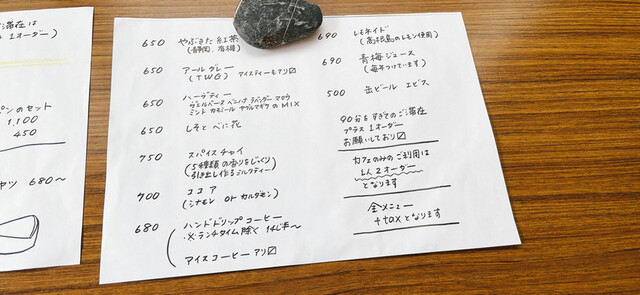 滞在は
1オーダー
のセット
1,100
450
680〜
650 やぶきた 紅茶
(静岡, 有機)
650 アールグレー
(TWG) アイスティーもアリ
650 ハーブティー
ミント カモミール ヤグルマギクのMIX
650 しそと べに花
750 スパイスチャイ
(5種類の香りをじっくり
引き出し作るミルクティー)
700 ココア
(シナモン or カルダモン)
680 ハンドドリップコーヒー
※ランチタイム除く 14時〜
アイスコーヒーアリ
690 レモネイド
(高根島のレモン使用)
690 青梅ジュース
(毎年つけています)
500 缶ビール エビス
90分をすぎてのご滞在
プラス1オーダー
お願いしており〼
カフェのみのご利用は
1人2オーダー
となります
全メニュー
+taxとなります